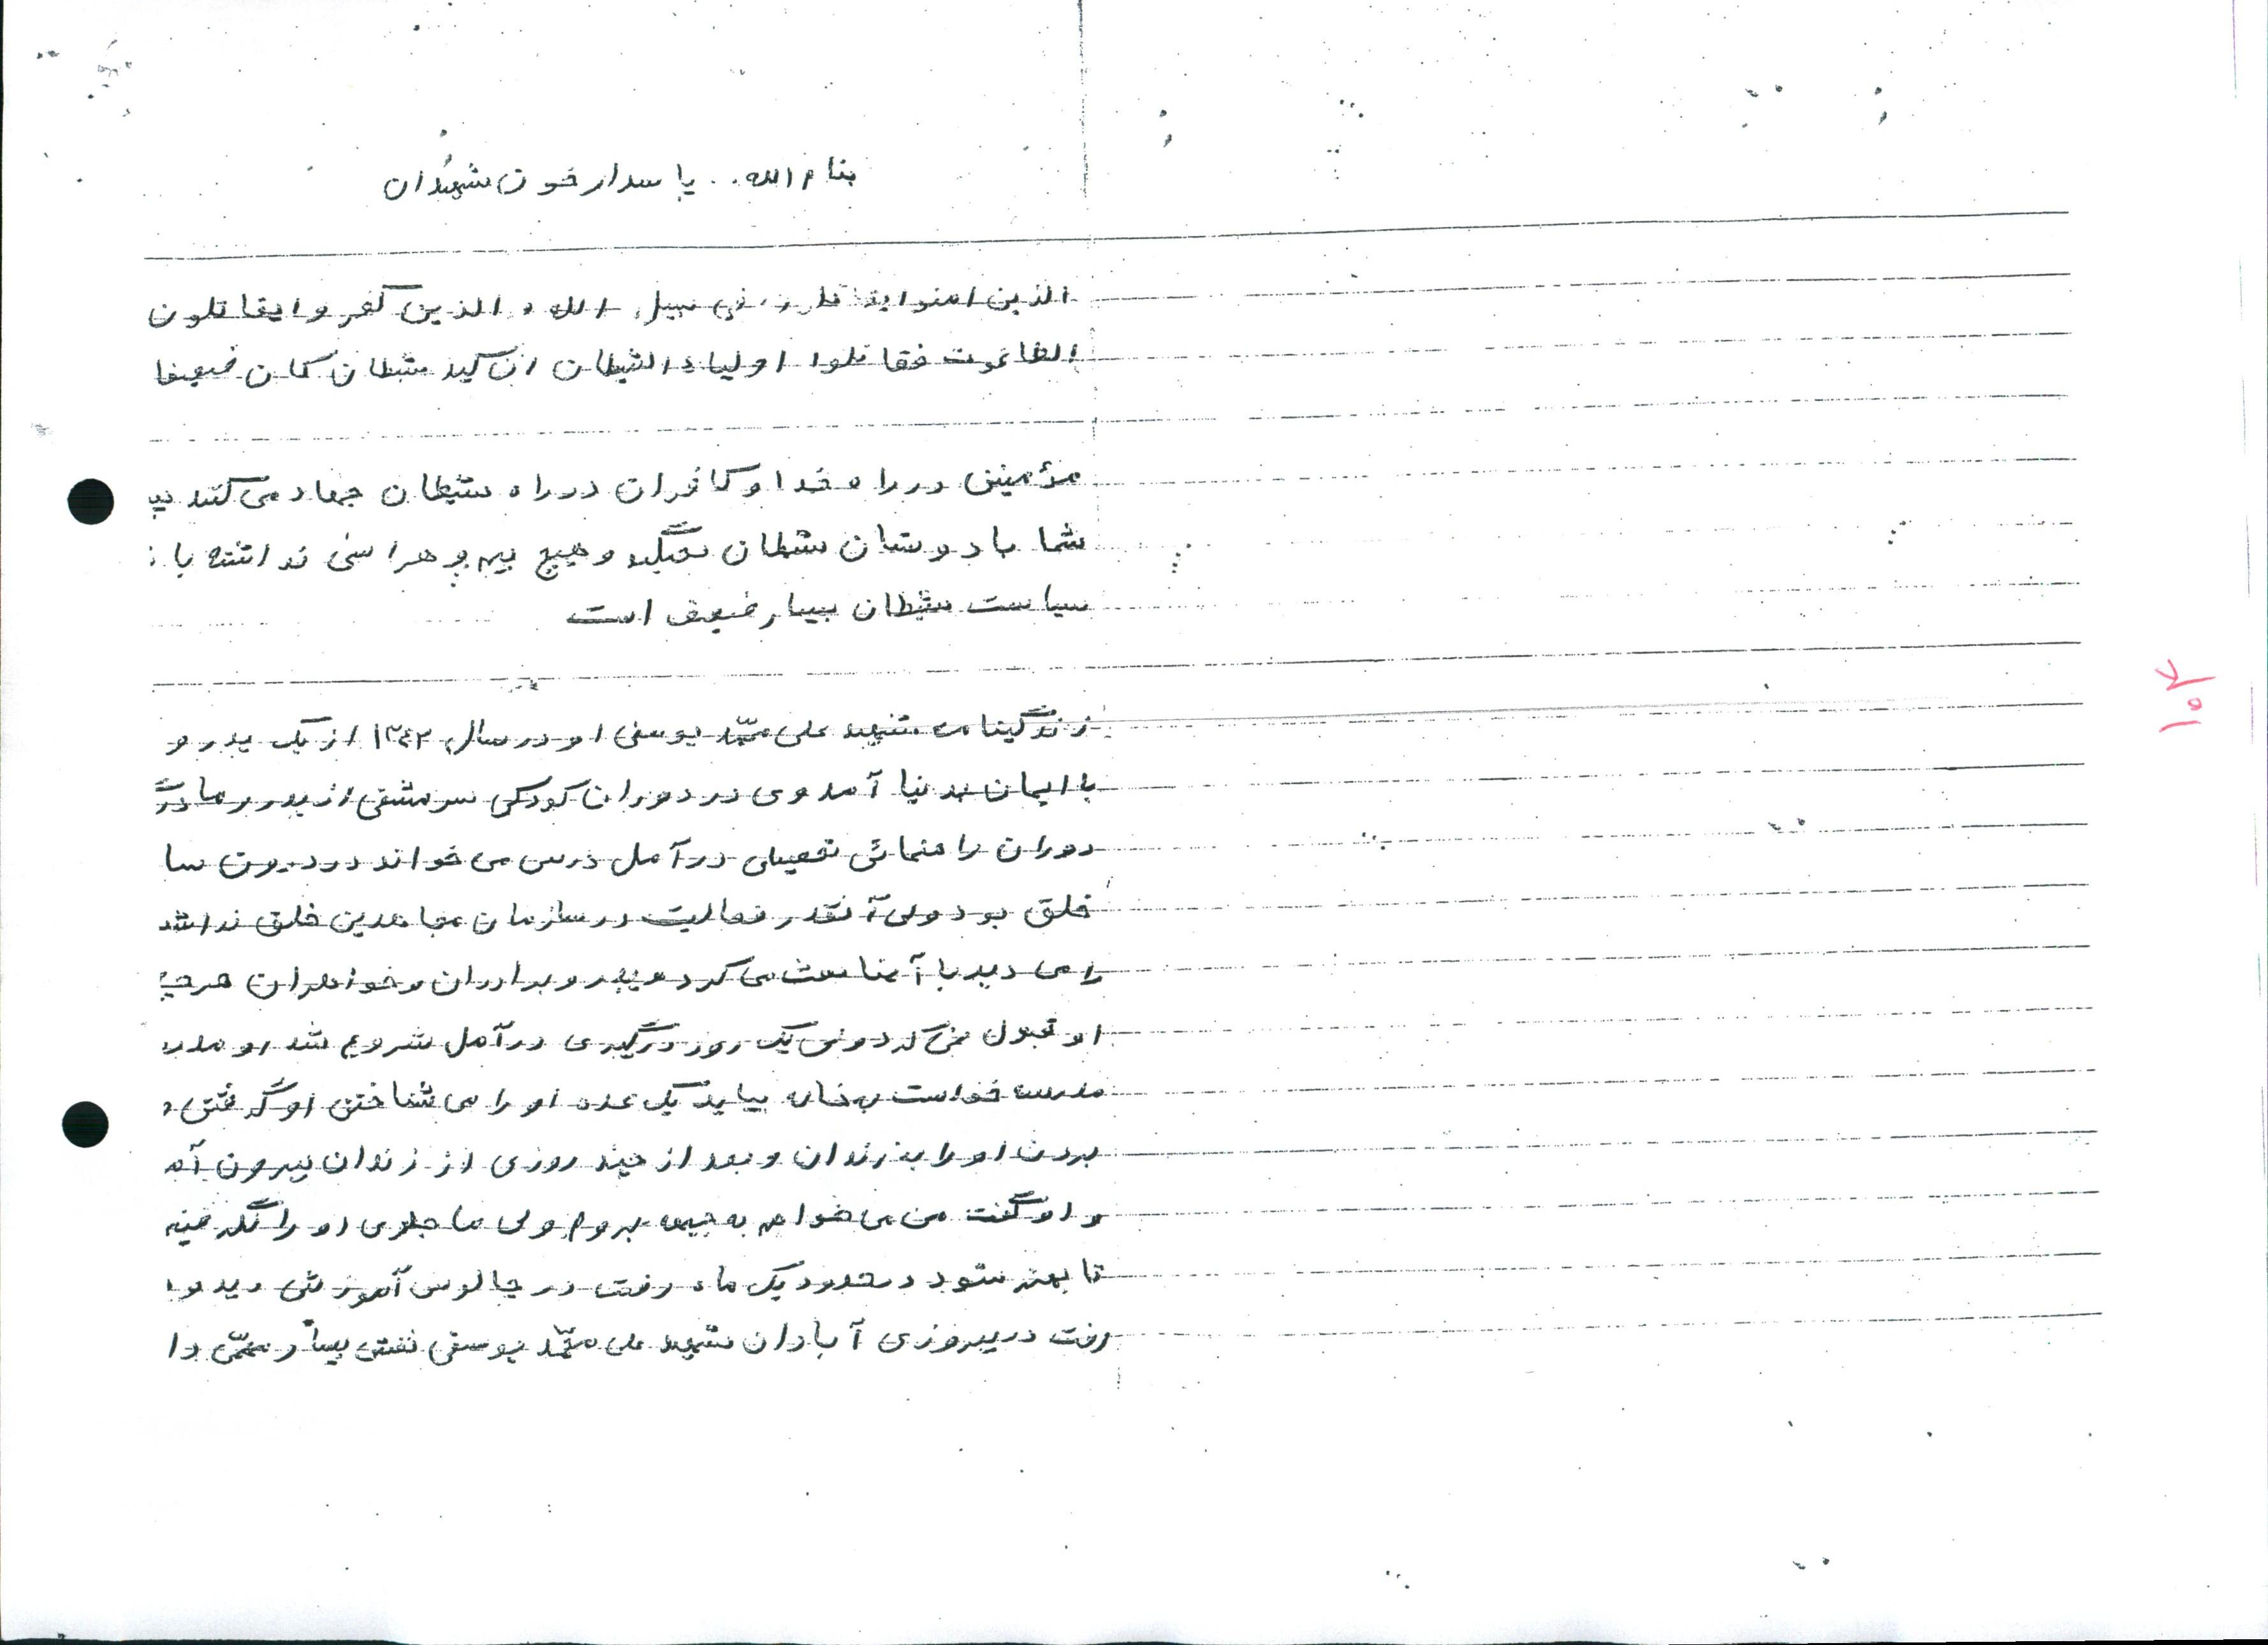 بنام الله .. پاسدار خون شهیدان
الذین امنوا یقاتلون فی سبیل الله و الذین کفروا یقاتلون
الطاغوت فقاتلوا اولیاء الشیطان ان کید شیطان کان ضعیفا
مؤمنین در راه خدا و کافران در راه شیطان جهاد می کنند
شما با دوستان شیطان بجنگید و هیچ بیم و هراسی نداشته با
سیاست شیطان بسیار ضعیف است
زندگینامه شهید علی محمد یوسفی او در سال ۱۳۴۲ از یک پدر و
با ایمان بدنیا آمد وی در دوران کودکی سرمشقی از پدر و مادر
دوران راهنمائی تحصیلی در آمل درس می خواند در درون سا
خلق بود ولی آنقدر فعالیت در سازمان مجاهدین خلق نداشت
را می دید با آنها بحث می کرد و پدر و برادران و خواهران هرچه
او قبول نمی کرد ولی یک روز درگیری در آمل شروع شد او
مدرسه خواست به خانه بیاید یک عده او را می شناختن او گرفتن و
بردن او را به زندان و بعد از چند روزی از زندان بیرون آمد
و او گفت من می خواهم به جبهه بروم ولی ما جلوی او را نگرفتیم
تا بهتر شود در حدود یک ماه رفت در چالوس آموزشی دید و
رفت در پیروزی آبادان شهید علی محمد یوسفی نقش بسیار مهمی دا
۱۵۲